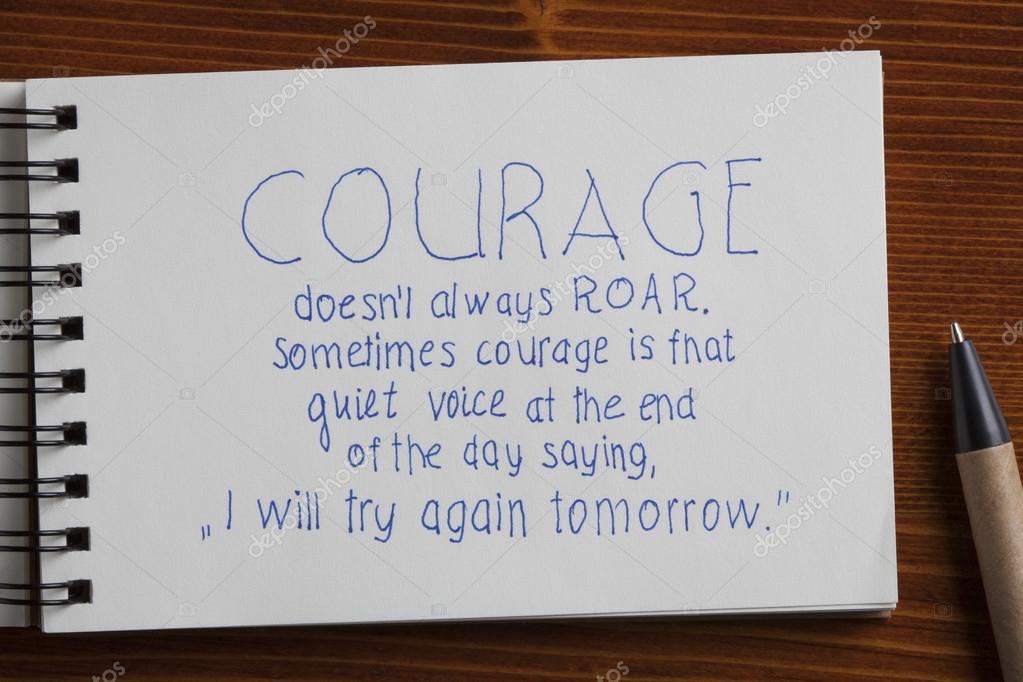 COURAGE
doesn't always ROAR.
Sometimes courage is that
quiet voice at the end
of the day saying,
„I will try again tomorrow."
depositphotos
depositphotos
depositphotos
depositphotos
depositphotos
depositphotos
depositphotos